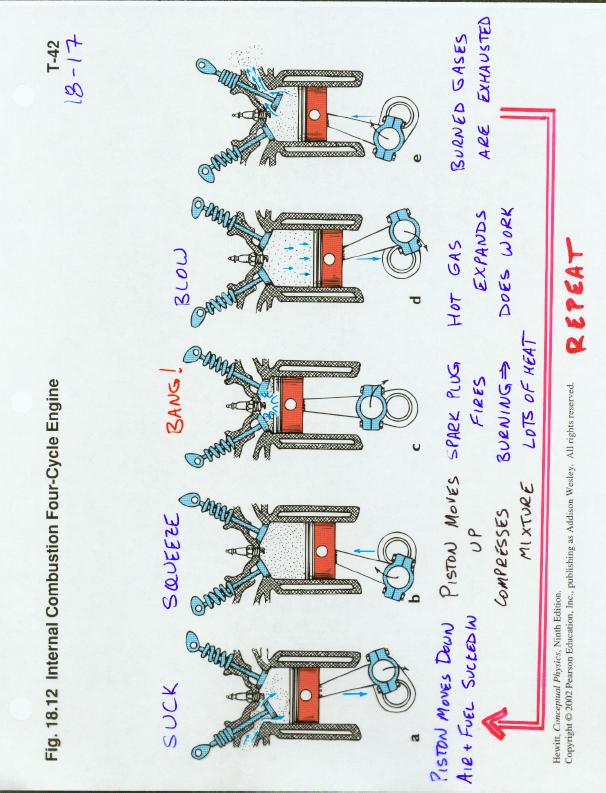 Fig. 18.12 Internal Combustion Four-Cycle Engine
T-42
18-17
SUCK
SQUEEZE
BANG!
BLOW
a
b
c
d
e
PISTON MOVES DOWN
AIR + FUEL SUCKED IN
PISTON MOVES
UP
COMPRESSES
MIXTURE
SPARK PLUG
FIRES
BURNING ⇒
LOTS OF HEAT
HOT GAS
EXPANDS
DOES WORK
BURNED GASES
ARE EXHAUSTED
REPEAT
Hewitt, Conceptual Physics, Ninth Edition.
Copyright © 2002 Pearson Education, Inc., publishing as Addison Wesley. All rights reserved.